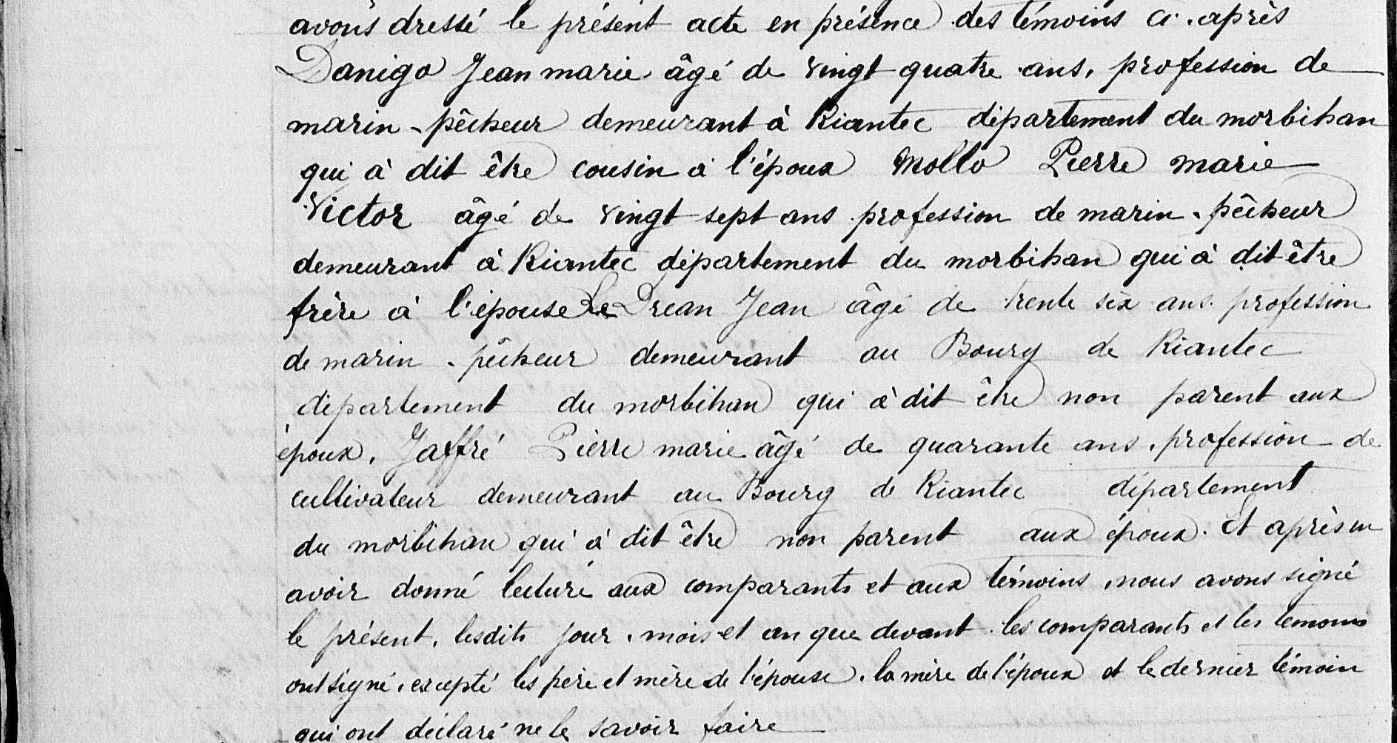 avons dressé le présent acte en présence des témoins ci-après
Danigo Jean marie âgé de vingt quatre ans, profession de
marin-pêcheur demeurant à Riantec département du morbihan
qui à dit être cousin à l'époux Mollo Pierre marie
Victor âgé de vingt sept ans profession de marin-pêcheur
demeurant à Riantec département du morbihan qui à dit être
frère à l'épouse Le Dréan Jean âgé de trente six ans profession
de marin-pêcheur demeurant au Bourg de Riantec
département du morbihan qui à dit être non parent aux
époux, Jaffré Pierre marie âgé de quarante ans, profession de
cultivateur demeurant au Bourg de Riantec département
du morbihan qui à dit être non parent aux époux. Et après en
avoir donné lecture aux comparants et aux témoins, nous avons signé
le présent, lesdits jour, mois et an que devant. les comparants et les temoins
ont signé, excepté les père et mère de l'épouse, la mère de l'époux et le dernier témoin
qui ont déclaré ne le savoir faire